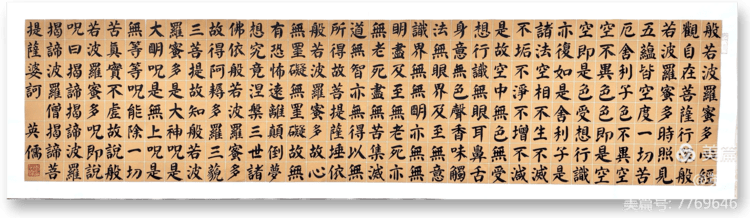 般若波羅蜜多心經
觀自在菩薩行深般
若波羅蜜多時照見
五蘊皆空度一切苦
厄舍利子色不異空
空不異色色即是空
空即是色受想行識
亦復如是舍利子是
諸法空相不生不滅
不垢不淨不增不減
是故空中無色無受
想行識無眼耳鼻舌
身意無色聲香味觸
法無眼界乃至無意
識界無無明亦無無
明盡乃至無老死亦
無老死盡無苦集滅
道無智亦無得以無
所得故菩提薩埵依
般若波羅蜜多故心
無罣礙無罣礙故無
有恐怖遠離顛倒夢
想究竟涅槃三世諸
佛依般若波羅蜜多
故得阿耨多羅三藐
三菩提故知般若波
羅蜜多是大神呪是
大明呪是無上呪是
無等等呪能除一切
苦真實不虛故說般
若波羅蜜多呪即說
呪曰揭諦揭諦波羅
揭諦波羅僧揭諦菩
提薩婆訶 英儒
美篇
美篇号: 7769646